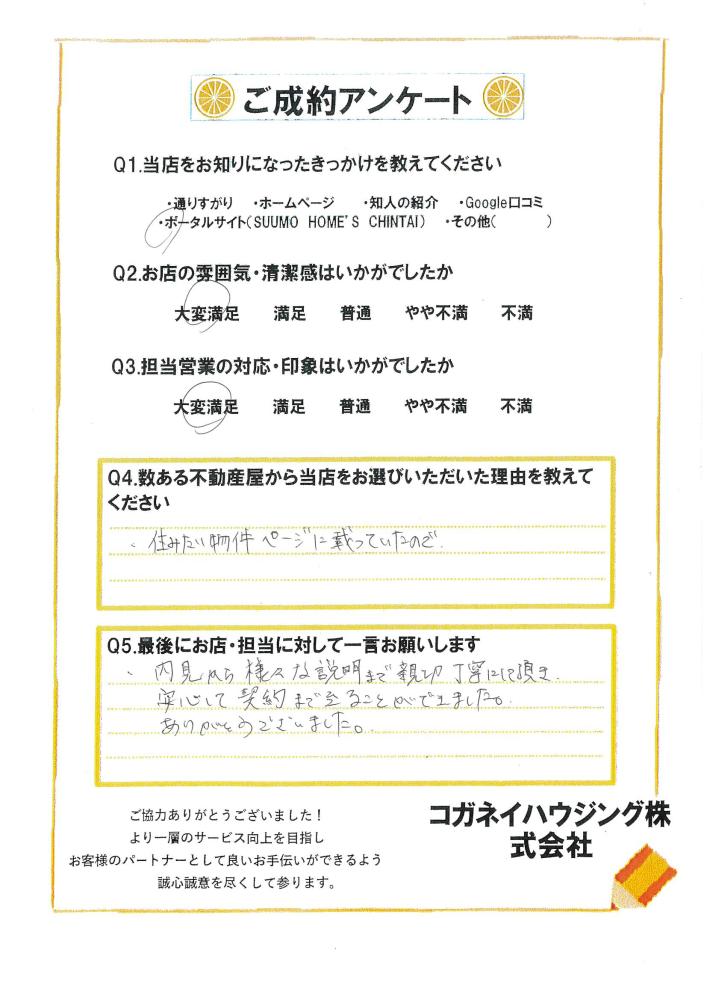 ご成約アンケート
Q1.当店をお知りになったきっかけを教えてください
・通りすがり ・ホームページ ・知人の紹介 ・Google口コミ
・ポータルサイト(SUUMO HOME'S CHINTAI) ・その他( )
Q2.お店の雰囲気・清潔感はいかがでしたか
大変満足 満足 普通 やや不満 不満
Q3.担当営業の対応・印象はいかがでしたか
大変満足 満足 普通 やや不満 不満
Q4.数ある不動産屋から当店をお選びいただいた理由を教えて
ください
・住みたい物件ページに載っていたので.
Q5.最後にお店・担当に対して一言お願いします
・内見から様々な説明まで親切丁寧にして頂き.
安心して契約まで至ることができました。
ありがとうございました。
ご協力ありがとうございました！
より一層のサービス向上を目指し
お客様のパートナーとして良いお手伝いができるよう
誠心誠意を尽くして参ります。
コガネイハウジング株
式会社